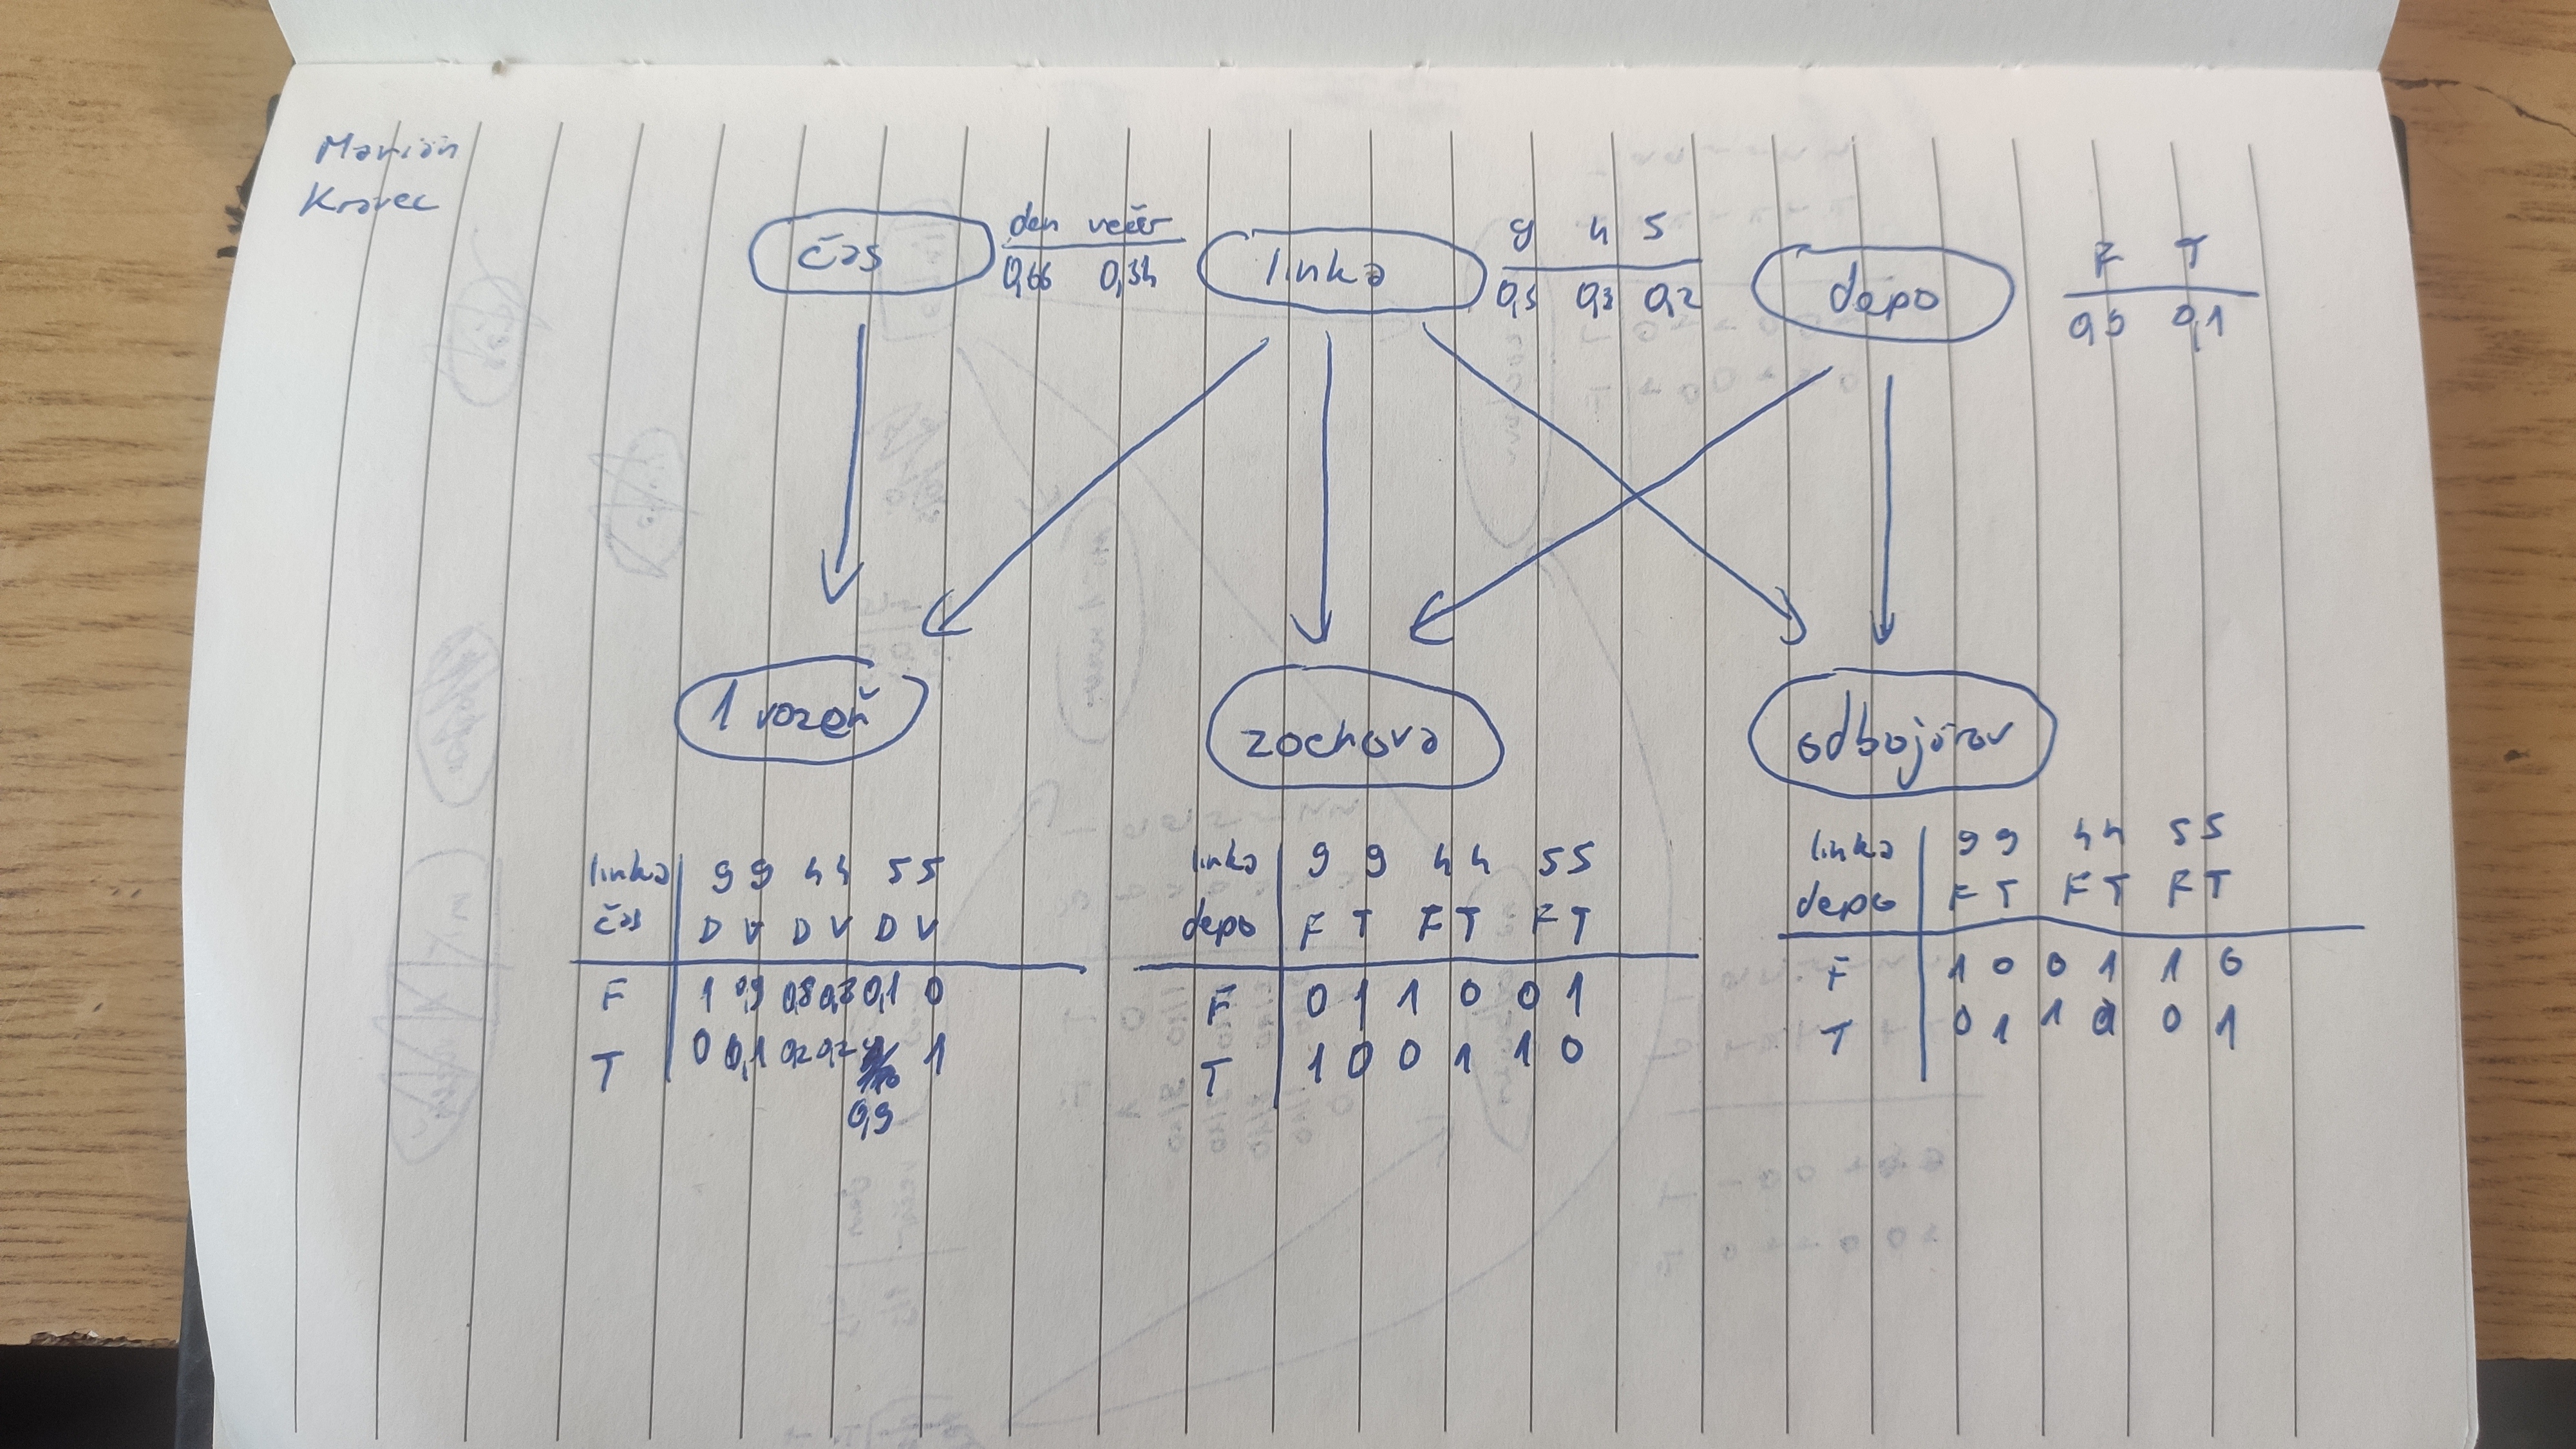 Marián
Kravec
čas
den večer
0,66 0,34
linka
9 4 5
0,5 0,3 0,2
depo
F T
0,9 0,1
1 vozeň
zochova
odbojárov
linka 9 9 4 4 5 5
čas D V D V D V
F 1 0,9 0,8 0,8 0,1 0
T 0 0,1 0,2 0,2 0,9 1
linka 9 9 4 4 5 5
depo F T F T F T
F 0 1 1 0 0 1
T 1 0 0 1 1 0
linka 9 9 4 4 5 5
depo F T F T F T
F 1 0 0 1 1 0
T 0 1 1 0 0 1